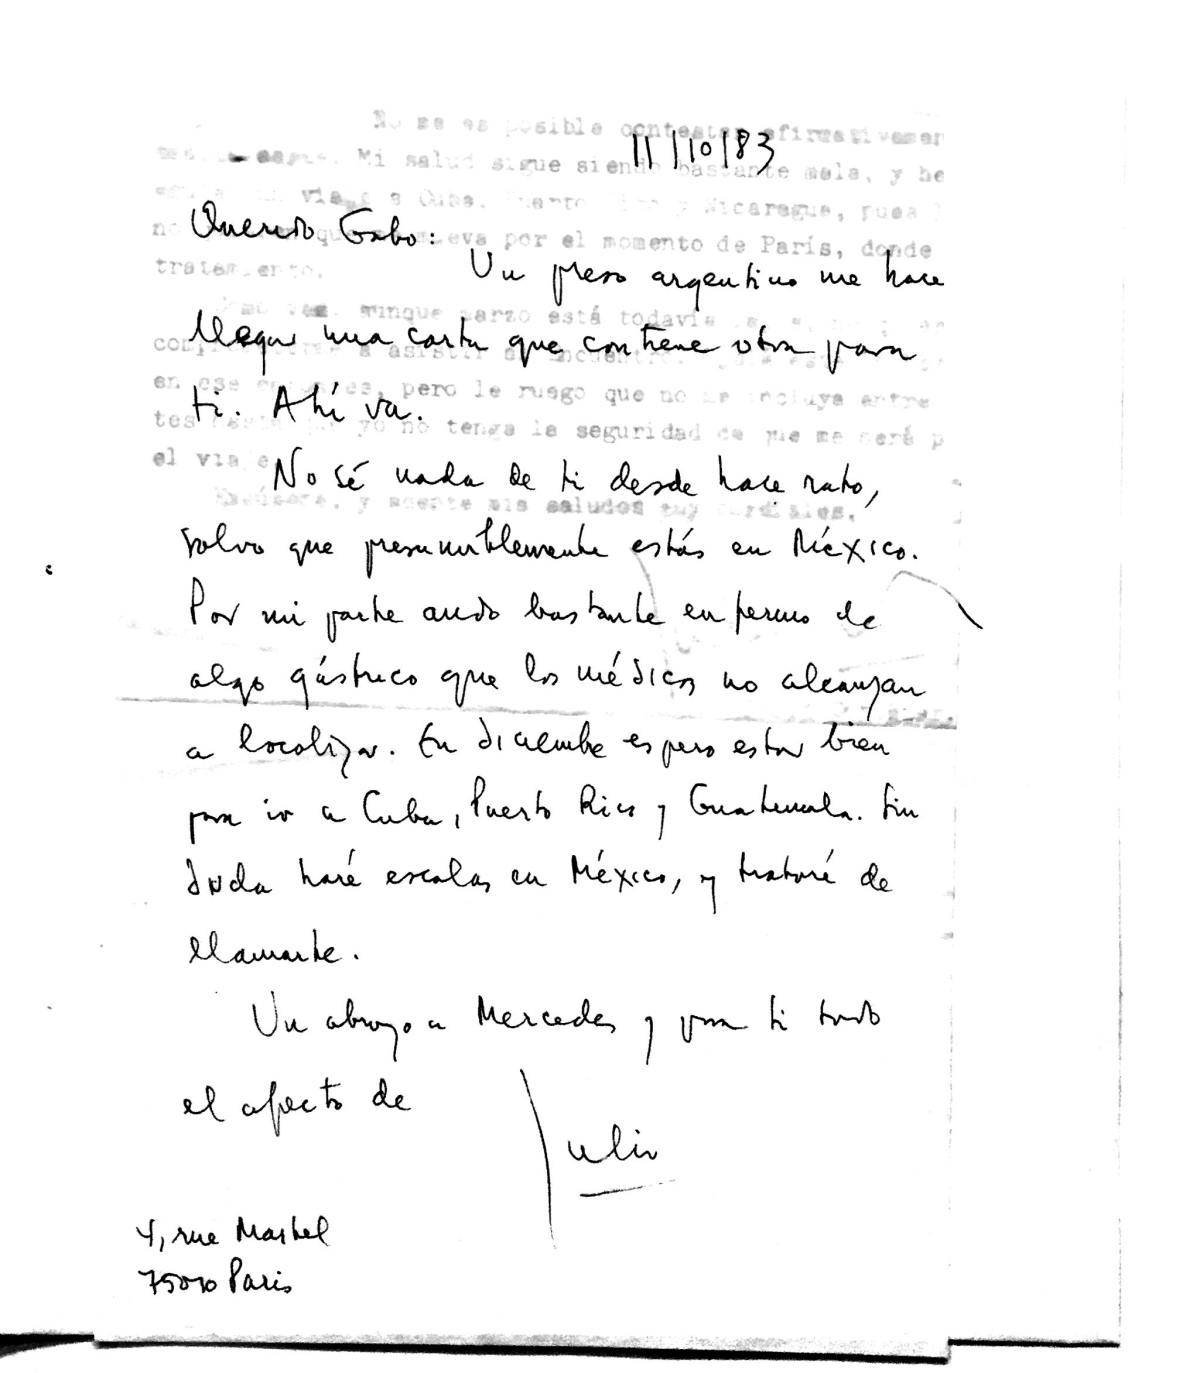 No me es posible contestar afirmativamen
Mi salud sigue siendo bastante mala, y he
11/10/83
viaje a Cuba, Puerto Rico y Nicaragua, pues
Querido Gabo:
por el momento de París, donde
tratamiento.
Un preso argentino me hace
aunque marzo está todavía
llegar una carta que contiene otra para
a asistir al encuentro.
en ese pero le ruego que no me incluya entre
ti. Ahí va.
yo no tenga la seguridad de que me será p
el viaje
No sé nada de ti desde hace rato,
Excúseme, y acepte mis saludos muy cordiales,
salvo que presumiblemente estás en México.
Por mi parte ando bastante enfermo de
algo gástrico que los médicos no alcanzan
a localizar. En diciembre espero estar bien
para ir a Cuba, Puerto Rico y Guatemala. Sin
duda haré escalas en México, y trataré de
llamarte.
Un abrazo a Mercedes y para ti todo
el afecto de
Julio
4, rue Martel
75010 Paris